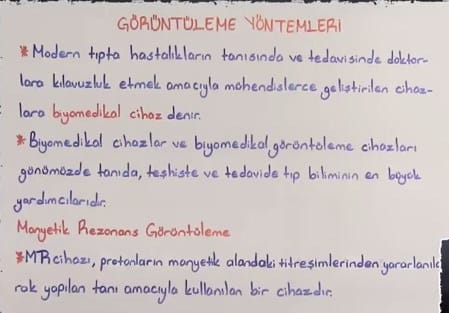 GÖRÜNTÜLEME YÖNTEMLERİ
* Modern tıpta hastalıkların tanısında ve tedavisinde doktor-
lara kılavuzluk etmek amacıyla mühendislerce geliştirilen cihaz-
lara biyomedikal cihaz denir.
* Biyomedikal cihazlar ve biyomedikal görüntüleme cihazları
günümüzde tanıda, teşhiste ve tedavide tıp biliminin en büyük
yardımcılarıdır.
Manyetik Rezonans Görüntüleme
* MR cihazı, protonların manyetik alandaki titreşimlerinden yararlanıla
rak yapılan tanı amacıyla kullanılan bir cihazdır.